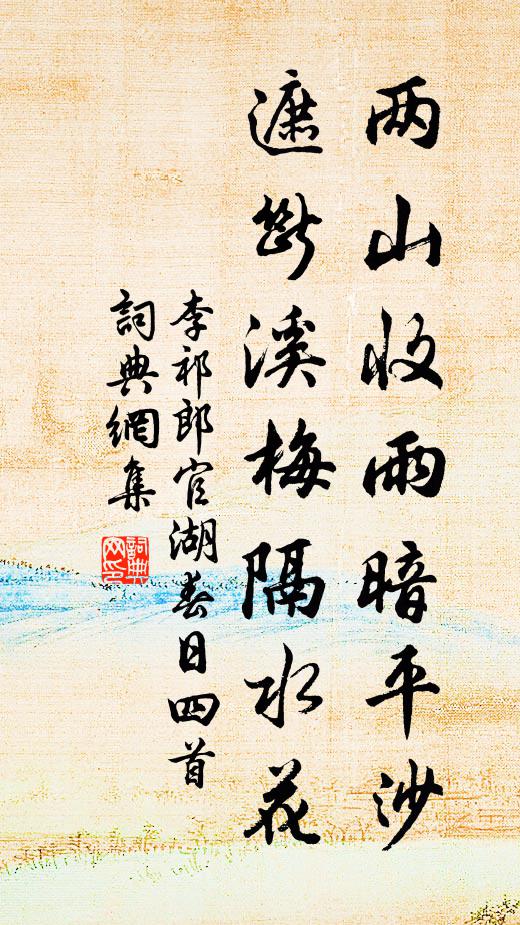 两山收雨暗平沙
遮断溪梅隔水花
李祁郎官湖春日四首
詞典網集
詞典网印